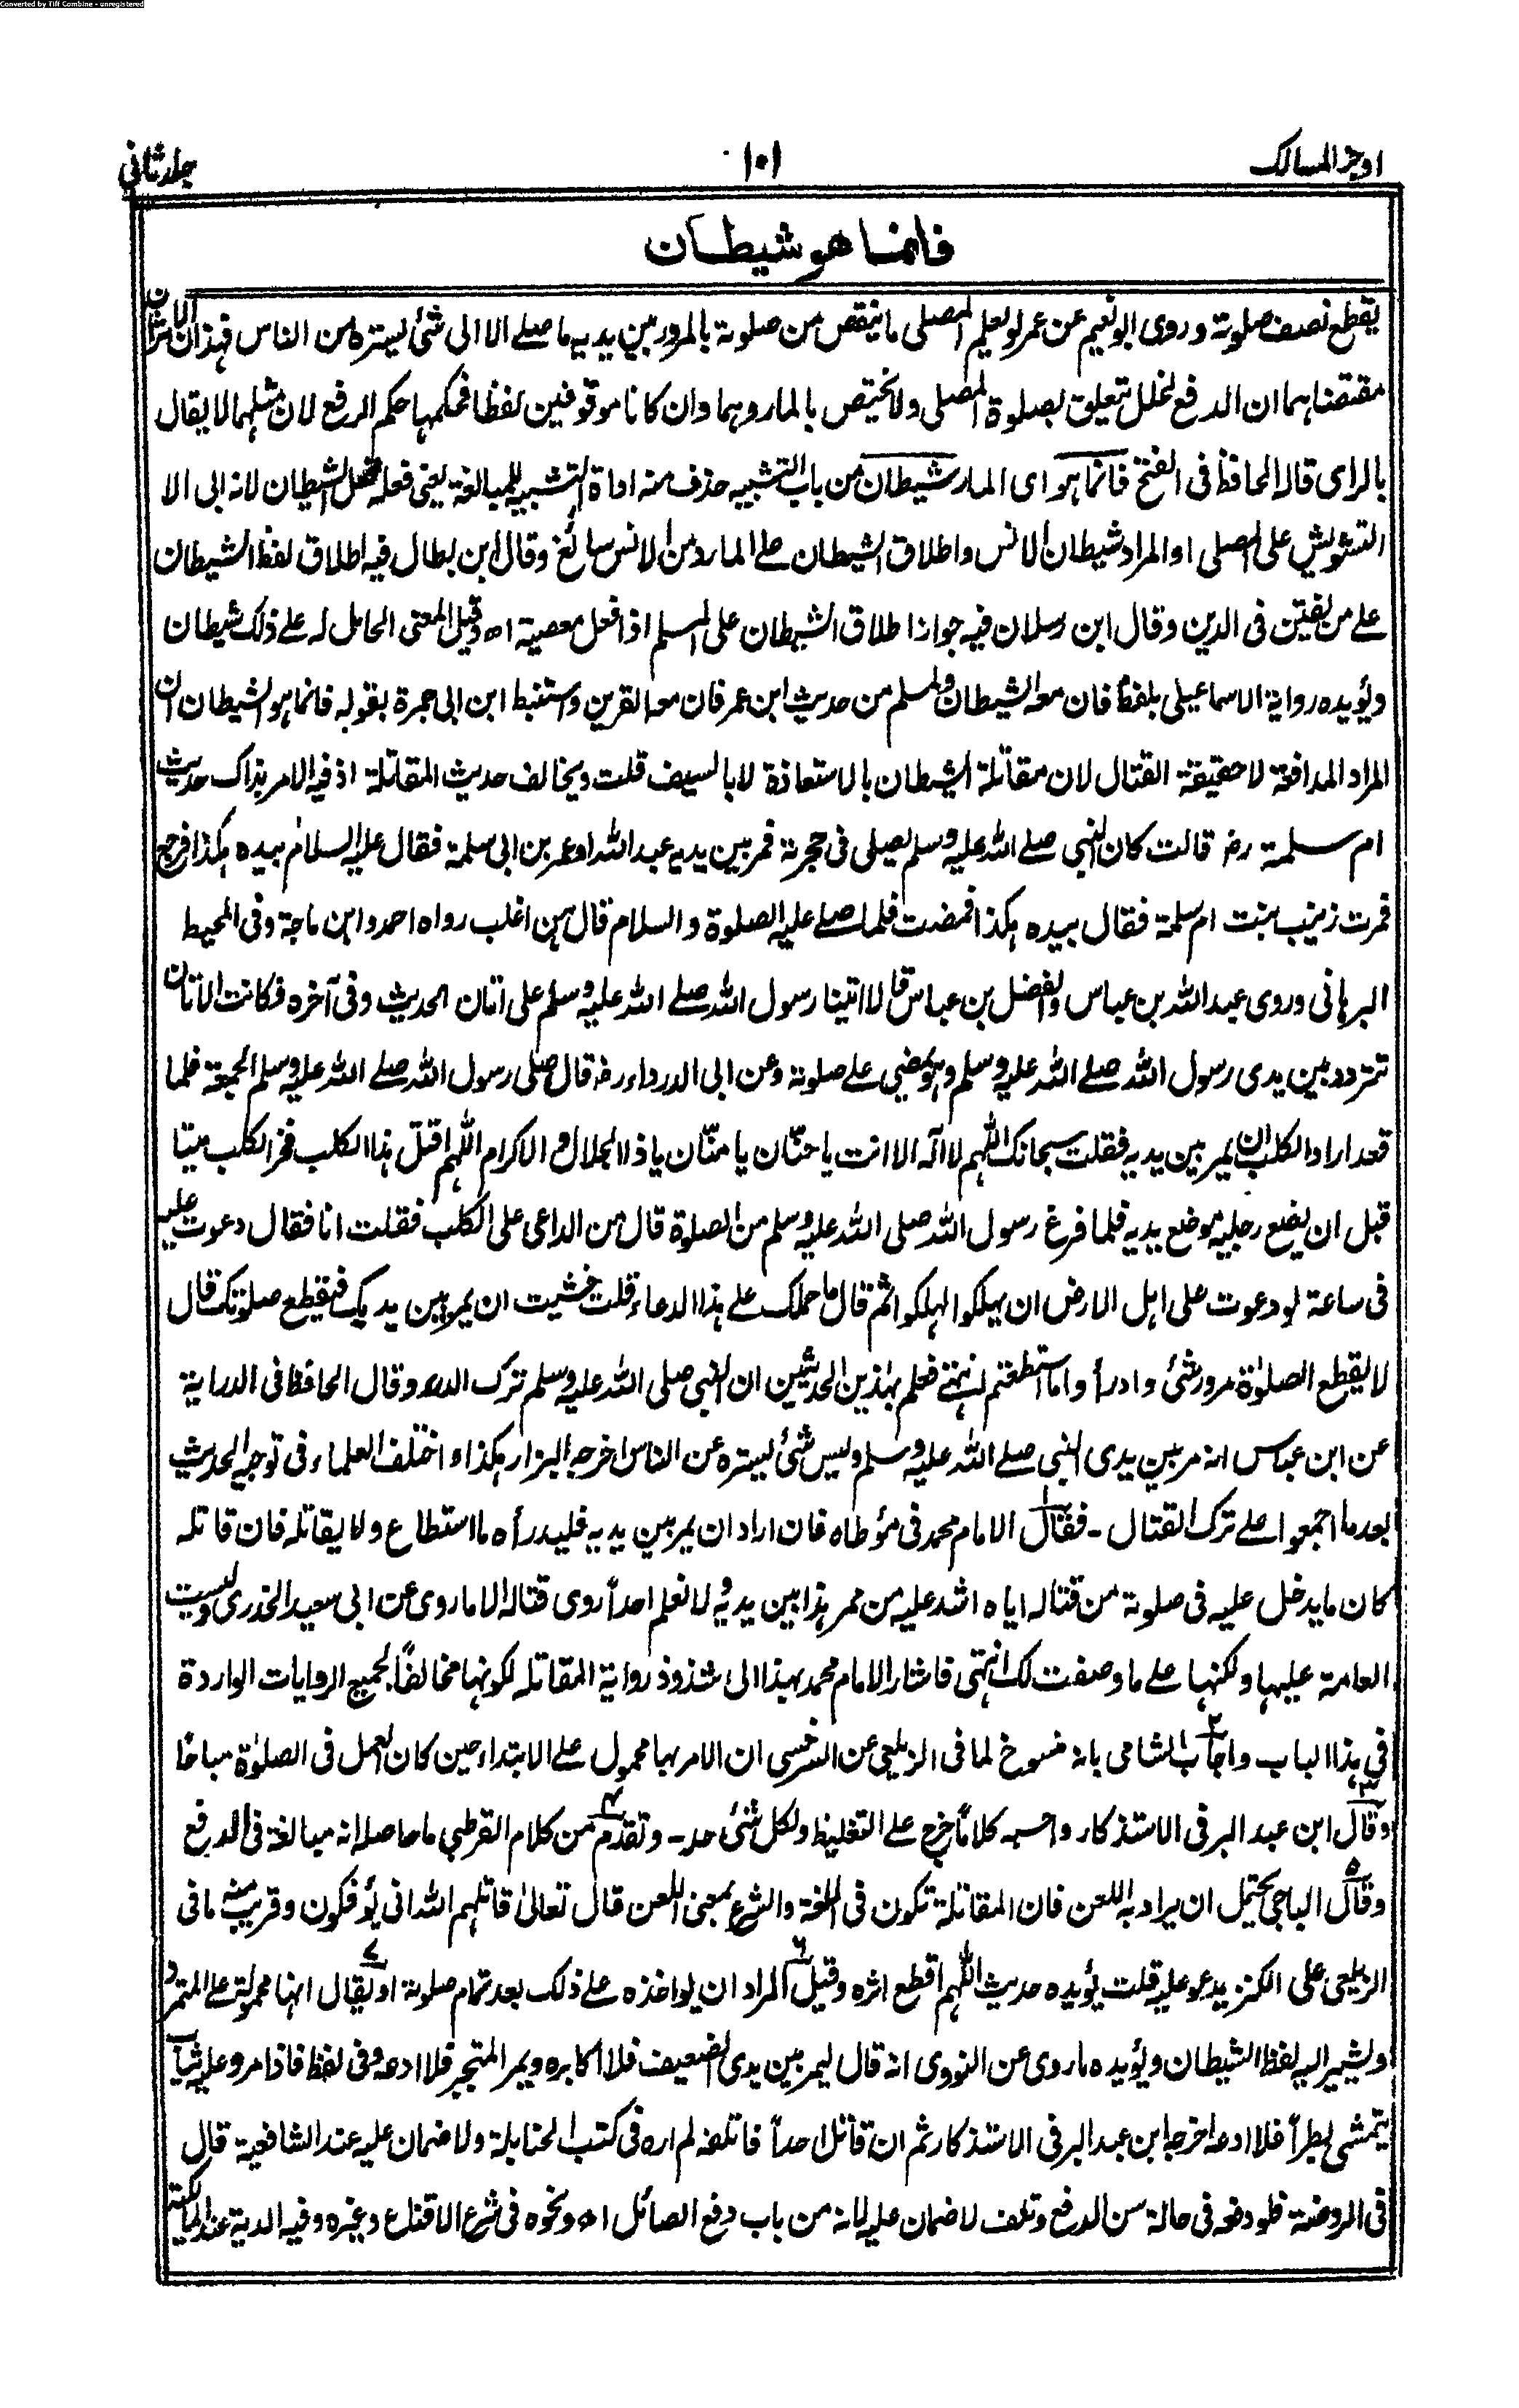 Converted by Tiff Combine - unregistered
اوجز المسالک ۱۰۱ جلد ثانی
فانما هو شيطان
يقطع نصف صلوته وروى ابو نعيم عن عمر لو يعلم المصلى ما ينقص من صلوته بالمرور بين يديه ما صلے الا الى شئ يستره من الناس فهذان الاثران
مقتضاهما ان الدفع لخلل تتعلق بصلوة المصلى ولا يختص بالمار وهما وان كانا موقوفين لفظا فحكمهما حكم الرفع لان مثلهما لا يقال
بالراى قاله الحافظ فى الفتح فانما هو اى المار شيطان من باب التشبيه حذف منه اداة التشبيه للمبالغة يعنى فعله فعل الشيطان لانه ابى الا
التشويش على المصلى او المراد شيطان الانس واطلاق الشيطان علے المارد من الانس سائغ وقال ابن بطال فيه اطلاق لفظ الشيطان
علے من يفتن فى الدين وقال ابن رسلان فيه جواز اطلاق الشيطان على المسلم اذا فعل معصية اھ وقيل المعنى الحامل له علے ذلك شيطان
ويؤيده رواية الاسماعيلى بلفظ فان معه الشيطان ولمسلم من حديث ابن عمر فان معه القرين واستنبط ابن ابى جمرة بقوله فانما هو الشيطان ان
المراد المدافعة لا حقيقة القتال لان مقاتلة الشيطان بالاستعاذة لا بالسيف قلت ويخالف حديث المقاتلة اذ فيه الامر بذاك حديث
ام سلمة رض قالت كان النبى صلے الله عليه وسلم يصلى فى حجرته فمر بين يديه عبد الله او عمر بن ابى سلمة فقال عليه السلام بيده هكذا فرجع
فمرت زينب بنت ام سلمة فقال بيده هكذا فمضت فلما صلے عليه الصلوة والسلام قال هن اغلب رواه احمد وابن ماجة وفى المحيط
البرهانى وروى عبد الله بن عباس والفضل بن عباس قالا اتينا رسول الله صلے الله عليه وسلم على اتان الحديث وفى آخره فكانت الاتان
تتردد بين يدى رسول الله صلے الله عليه وسلم وهو يمضى علے صلوته وعن ابى الدرداء رض قال صلى رسول الله صلے الله عليه وسلم الجمعة فلما
قعد اراد الكلب ان يمر بين يديه فقلت سبحانك اللهم لا اله الا انت يا حنّان يا منّان يا ذا الجلال والاكرام اللهم اقتل هذا الكلب فخر الكلب ميتا
قبل ان يضع رجليه موضع يديه فلما فرغ رسول الله صلى الله عليه وسلم من الصلوة قال من الداعى على الكلب فقلت انا فقال دعوت عليه
فى ساعة لو دعوت على اهل الارض ان يهلكوا لهلكوا ثم قال ما حملك علے هذا الدعاء قلت خشيت ان يمر بين يديك فيقطع صلوتك قال
لا يقطع الصلوٰة مرور شئ وادرأوا ما استطعتم انتهے فعلم بهذين الحديثين ان النبى صلى الله عليه وسلم ترك الدرء وقال الحافظ فى الدراية
عن ابن عباس انه مر بين يدى النبى صلے الله عليه وسلم وليس شئ يستره عن الناس اخرجه البزار هكذا واختلف العلماء فى توجيه الحديث
بعد ما اجمعوا علے ترك القتال - فقال الامام محمد فى مؤطاه فان اراد ان يمر بين يديه فليدرأه ما استطاع ولا يقاتله فان قاتله
كان ما يدخل عليه فى صلوته من قتاله اياه اشد عليه من ممر هذا بين يديه ولا نعلم احداً روى قتاله الا ما روى عن ابى سعيد الخدرى وليست
العامة عليها ولكنها علے ما وصفت لك انتهى فاشار الامام محمد بهذا الى شذوذ رواية المقاتلة لكونها مخالفاً لجميع الروايات الواردة
فى هذا الباب واجاب ۲ الشامى بانه منسوخ لما فى الزيلعى عن السرخسى ان الامر بها محمول علے الابتداء حين كان العمل فى الصلوٰة مباحا
وقال ۳ ابن عبد البر فى الاستذكار واحسبه كلاماً خرج علے التغليظ ولكل شئ حد - وتقدم ۴ من كلام القرطبى ما حاصله انه مبالغة فى الدفع
وقال ۵ الباجى يحتمل ان يراد به اللعن فان المقاتلة تكون فى اللغة والشرع بمعنى اللعن قال تعالىٰ قاتلهم الله انى يؤفكون وقريب منه ما فى
الزيلعى على الكنز يدعو عليه قلت يؤيده حديث اللهم اقطع اثره وقيل ۶ المراد ان يواخذه علے ذلك بعد تمام صلوته او يقال ۷ انها محمولة علے المتمرد
ويشير اليه لفظ الشيطان ويؤيده ما روى عن النووى انه قال ليمر بين يدى الضعيف فلا اكابره ويمر المتجبر فلا ادعه وفى لفظ فاذا مر وعليه ثياب
يتمشى بطراً فلا ادعه اخرجه ابن عبد البر فى الاستذكار ثم ان قاتل احداً فاتلفه لم اره فى كتب الحنابلة ولا ضمان عليه عند الشافعية قال
فى الروضة فلو دفعه فى حالة سن الدفع وتلف لا ضمان عليه لانه من باب دفع الصائل اھ ونحوه فى شرح الاقناع وغيره وفيه الدية عند المالكية